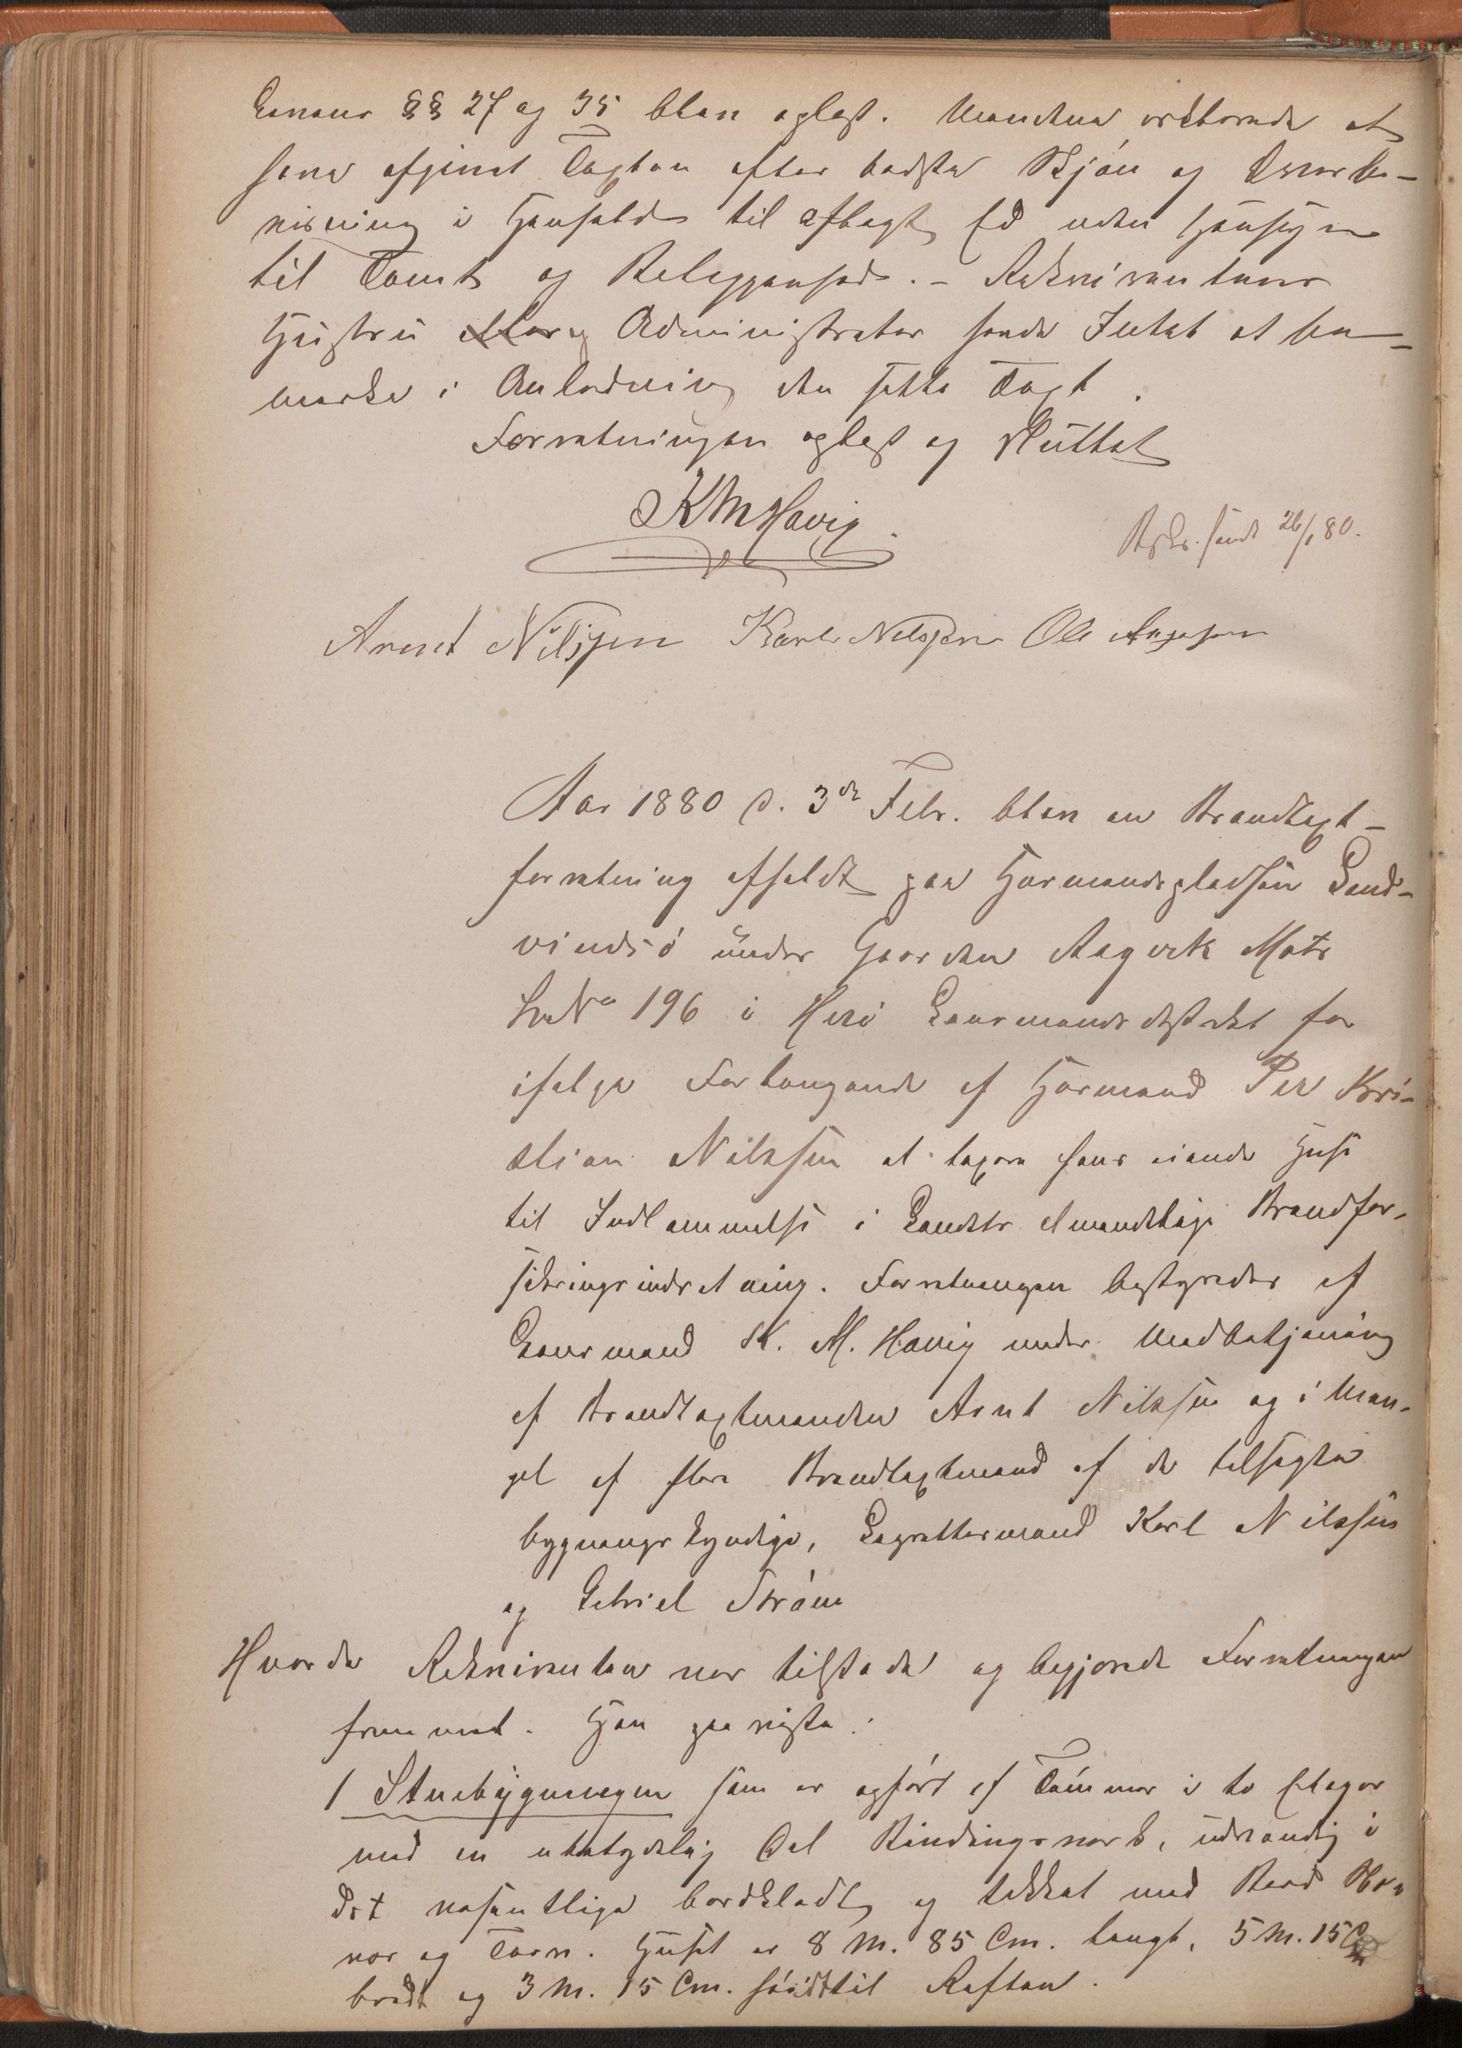 Lovens §§ 27 og 35 blev oplæst. Mændene erklærede at
have afgivet Taxten efter bedste Skjøn og Overbe-
visning i Henhold til aflagt Ed uden Hensyn
til Tomt og Beliggenhed. - Rekvirentens
Hustru Administrator havde Intet at be-
mærke i Anledning den satte Taxt.
Forretningen oplæst og sluttet
K M Havig.
Beskr. sendt 26/1 80.
Arent Nilssen Karl Nelssen Ole
Aar 1880 d. 3de Febr. blev en Brandtaxt-
forretning afholdt paa Husmandspladsen Sand-
vindsö under Gaarden Aagvik Matr
LøbNo 196 i Herö Lensmandsdistrikt for
ifølge Forlangende af Husmand Per Kri-
stian Nilssen at taxere hans eiende Huse
til Indlemmelse i Landets almindelige Brandfor-
sikringsindretning. Forretningen bestyredes af
Lensmand K. M. Havig under Medbetjening
af Brandtaxtmanden Arnt Nilssen og i Man-
gel af flere Brandtaxtmænd af de tilsagte
bygningskyndige, Lagrettesmænd Karl Nilssen
og Gabriel Strøm
Hvorda Rekvirenten var tilstede og begjærede Forretningen
fremmet. Han paaviste:
1 Stuebygningen som er opført af Tømmer i to Etager
med en ubetydelig Del Bindingsverk, udvendig i
det væsentlige bordklædt og tækket med Bord Næ-
ver og Torv. Huset er 8 M. 85 Cm. langt, 5 M. 15 Cm
bredt og 3 M. 15 Cm. høidt til Raften.